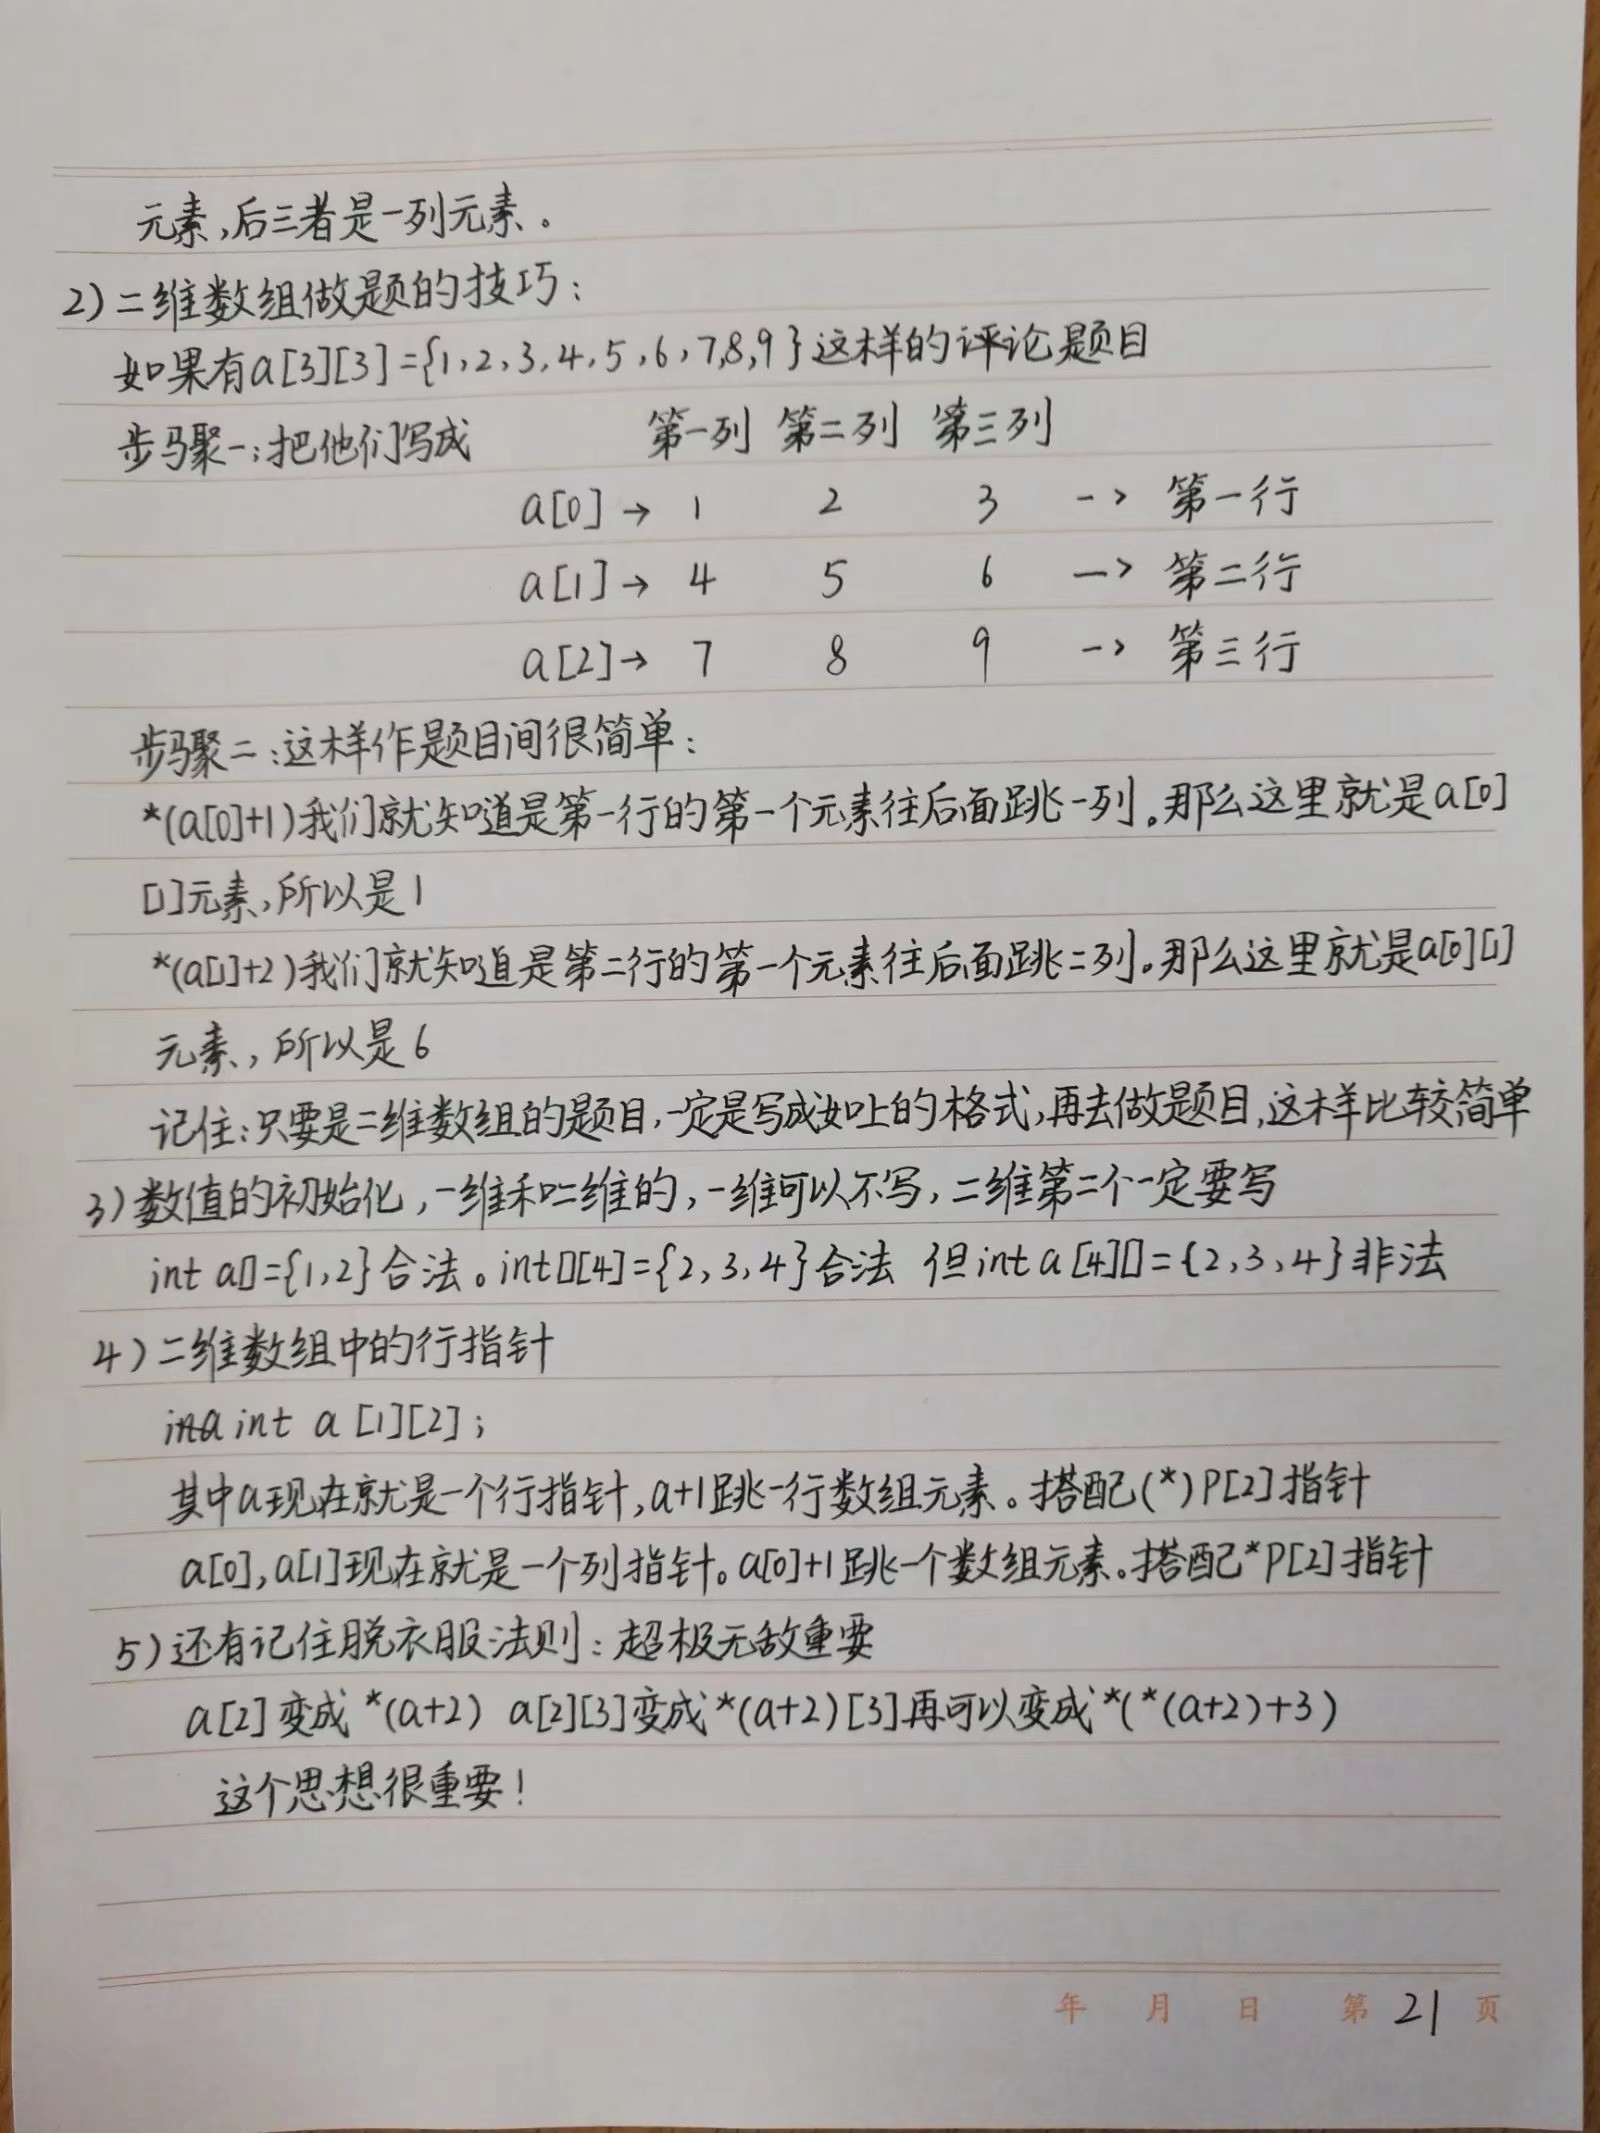 元素,后三者是一列元素。
2)二维数组做题的技巧:
如果有a[3][3]={1,2,3,4,5,6,7,8,9}这样的评论题目
步骤一:把他们写成 第一列 第二列 第三列
a[0]→ 1 2 3 -> 第一行
a[1]→ 4 5 6 —> 第二行
a[2]→ 7 8 9 -> 第三行
步骤二:这样作题目间很简单:
*(a[0]+1)我们就知道是第一行的第一个元素往后面跳一列。那么这里就是a[0]
[1]元素,所以是1
*(a[1]+2)我们就知道是第二行的第一个元素往后面跳二列。那么这里就是a[0][1]
元素,所以是6
记住:只要是二维数组的题目,一定是写成如上的格式,再去做题目,这样比较简单
3)数值的初始化,一维和二维的,一维可以不写,二维第二个一定要写
int a[]={1,2}合法。int[][4]={2,3,4}合法 但int a[4][]={2,3,4}非法
4)二维数组中的行指针
int a [1][2];
其中a现在就是一个行指针,a+1跳一行数组元素。搭配(*)P[2]指针
a[0],a[1]现在就是一个列指针。a[0]+1跳一个数组元素。搭配*P[2]指针
5)还有记住脱衣服法则:超极无敌重要
a[2]变成*(a+2) a[2][3]变成*(a+2)[3]再可以变成*(*(a+2)+3)
这个思想很重要!
年 月 日 第 21 页